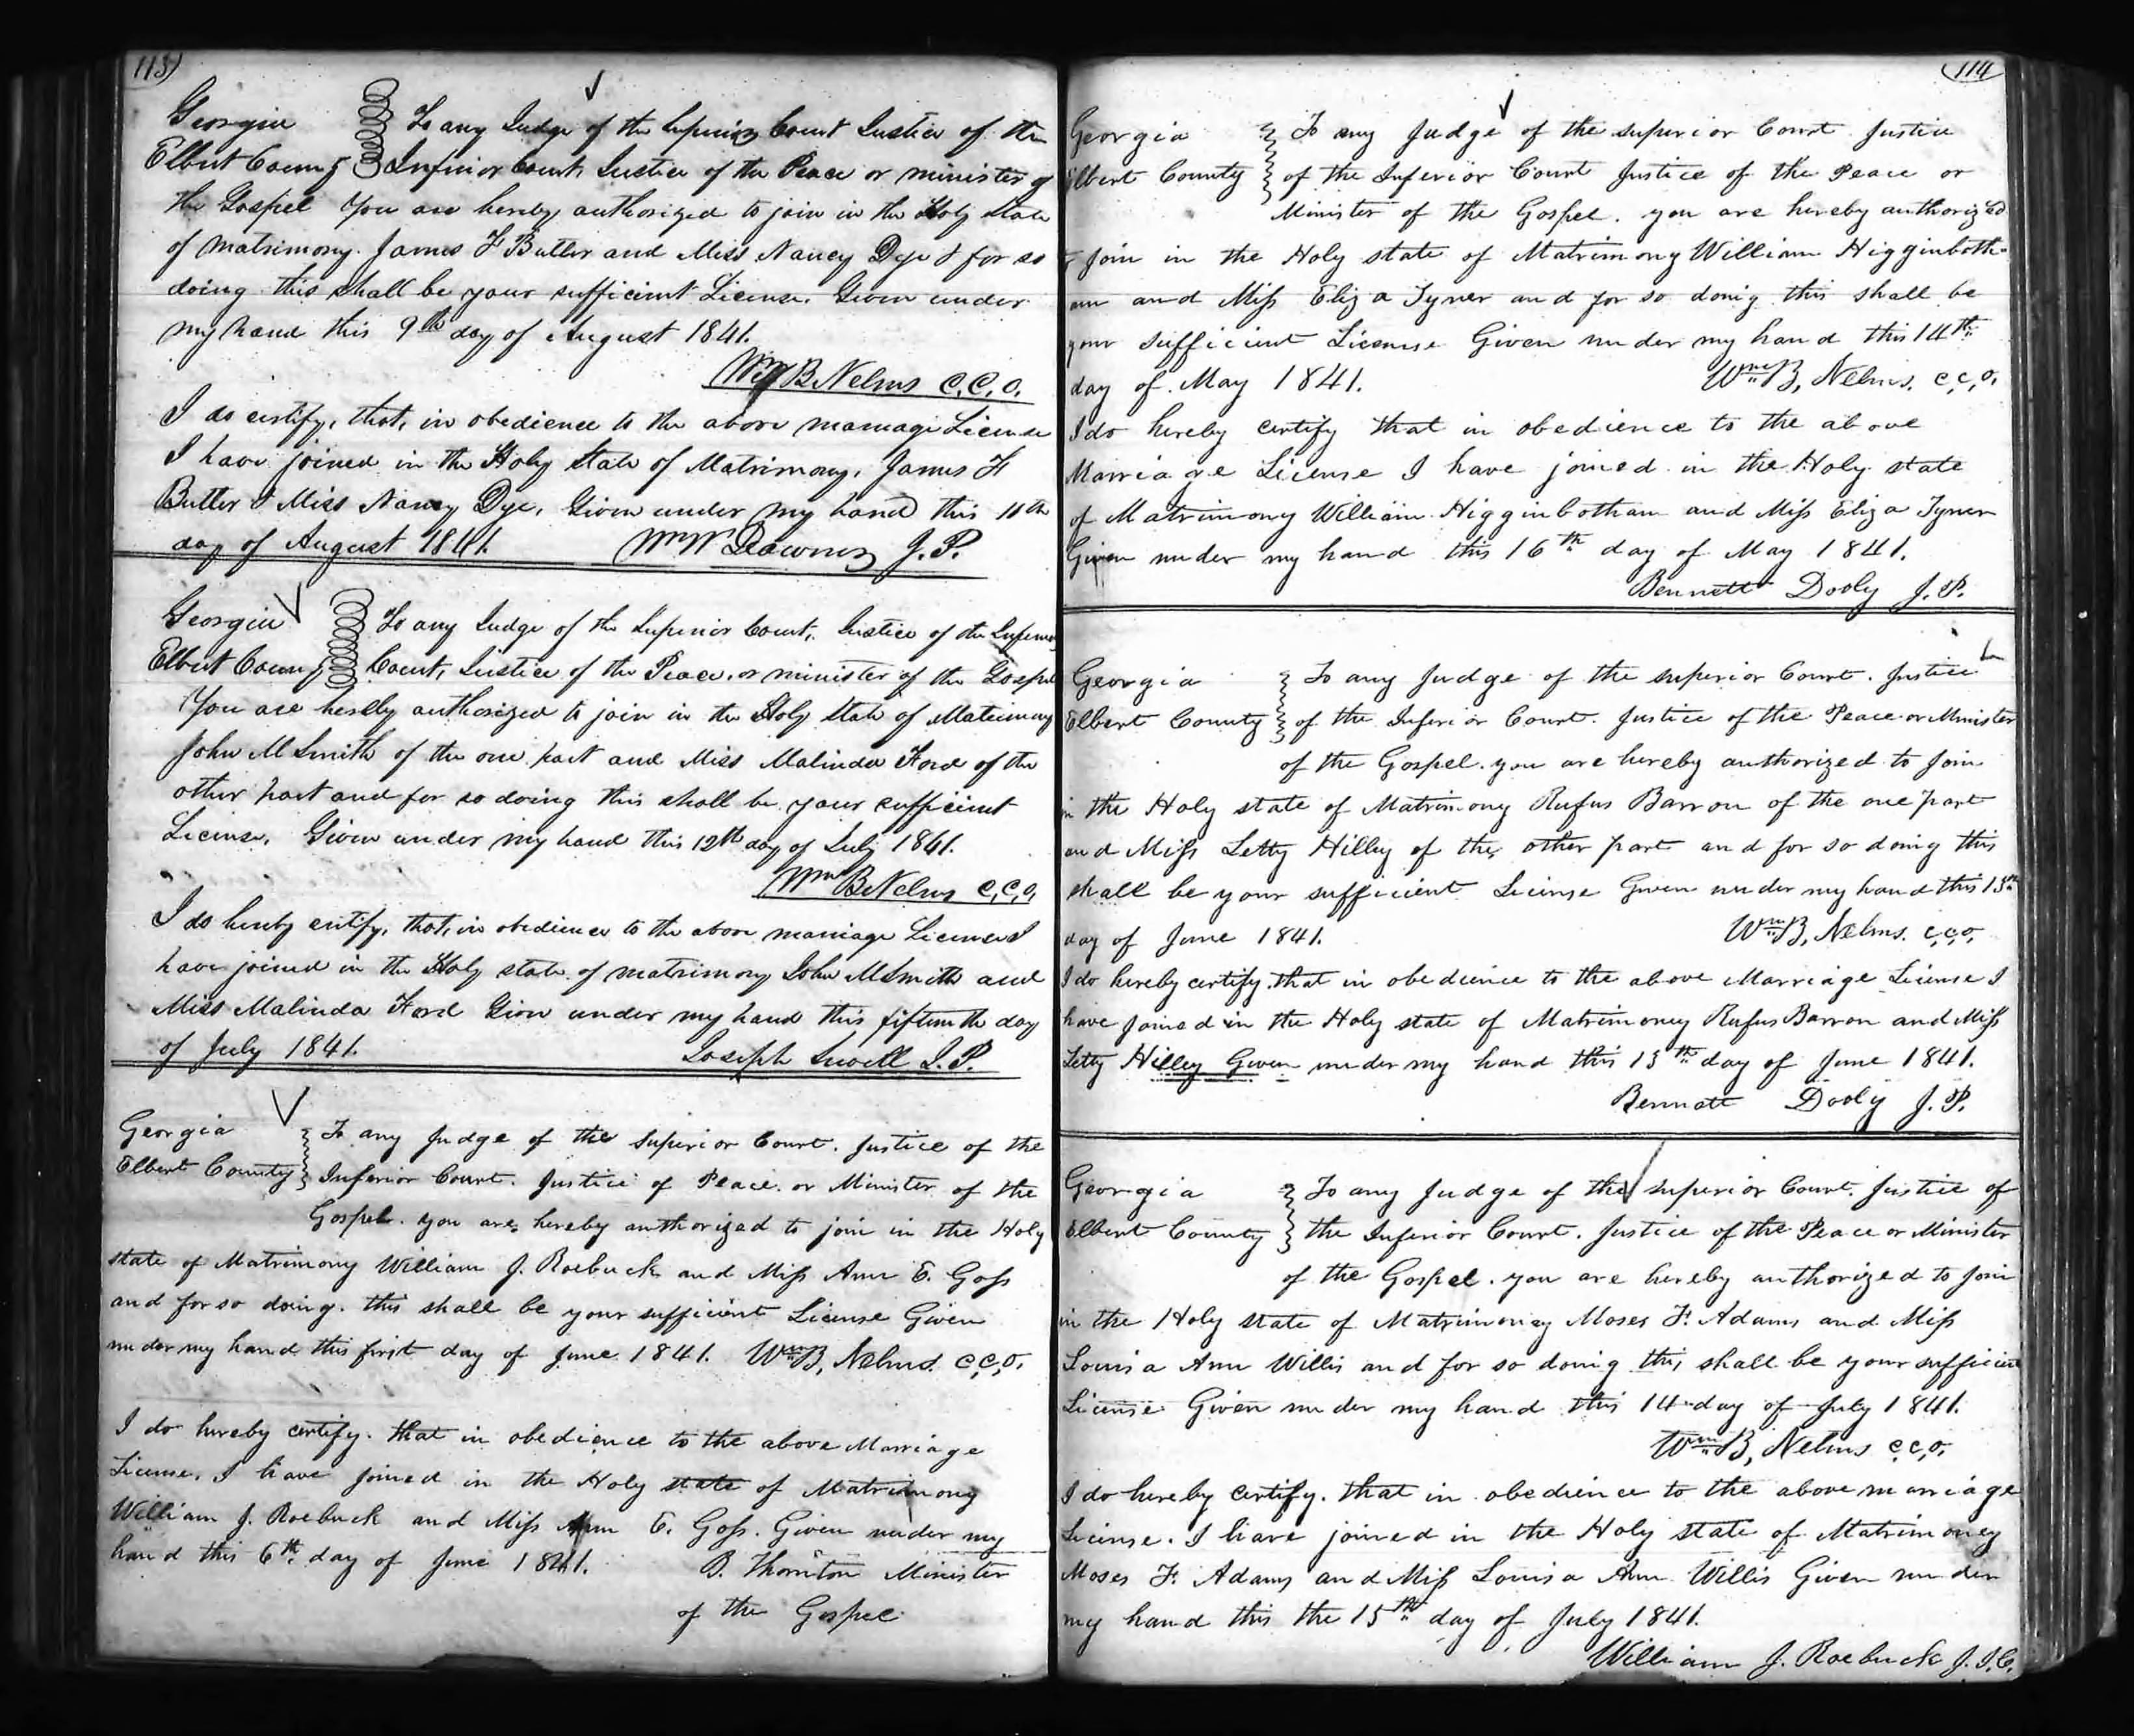 113)
Georgia To any Judge of the Superior Court Justice of the
Elbert County Inferior Court, Justice of the Peace or minister of
the Gospel You are hereby authorized to join in the Holy State
of matrimony. James F Butler and Miss Nancy Dye & for so
doing this shall be your sufficient License. Given under
my hand this 9th day of August 1841.
Wm B Nelms C.C.O.
I do certify, that, in obedience to the above marriage License
I have joined in the Holy State of Matrimony, James F
Butler & Miss Nancy Dye, Given under my hand this 11th
day of August 1841. Wm W Downer J.P.
Georgia To any Judge of the Superior Court, Justice of the
Elbert County Court, Justice of the Peace, or minister of the Gospel
You are hereby authorized to join in the Holy State of Matrimony
John M Smith of the one part and Miss Malinda Ford of the
other part and for so doing this shall be your sufficient
License. Given under my hand this 12th day of July 1841.
Wm B Nelms C.C.O.
I do hereby certify, that, in obedience to the above marriage License I
have joined in the Holy state of matrimony John M Smith and
Miss Malinda Ford Given under my hand this fifteenth day
of July 1841. Joseph Sewell J.P.
Georgia To any Judge of the Superior Court. Justice of the
Elbert County Inferior Court. Justice of Peace. or Minister of the
Gospel. you are hereby authorized to join in the Holy
state of Matrimony William J. Roebuck and Miss Ann E. Goss
and for so doing. this shall be your sufficient License Given
under my hand this first day of June 1841. Wm B, Nelms. C.C.O.
I do hereby certify. that in obedience to the above Marriage
License. I have joined in the Holy state of Matrimony
William J. Roebuck and Miss Ann E. Goss. Given under my
hand this 6th day of June 1841. B. Thornton Minister
of the Gospel
114
Georgia To any Judge of the superior Court Justice
Elbert County of the Inferior Court Justice of the Peace or
Minister of the Gospel. you are hereby authorized
to join in the Holy state of Matrimony William Higginboth-
am and Miss Eliza Tyner and for so doing this shall be
your sufficient License Given under my hand this 14th
day of May 1841. Wm B, Nelms. C.C.O.
I do hereby certify that in obedience to the above
Marriage License I have joined in the Holy state
of Matrimony William Higginbotham and Miss Eliza Tyner
Given under my hand this 16th day of May 1841.
Bennett Dooly J.P.
Georgia To any Judge of the superior Court. Justice
Elbert County of the Inferior Court. Justice of the Peace or Minister
of the Gospel. you are hereby authorized to join
in the Holy state of Matrimony Rufus Barron of the one part
and Miss Letty Hilley of the other part and for so doing this
shall be your sufficient License Given under my hand this 13th
day of June 1841. Wm B, Nelms. C.C.O.
I do hereby certify. that in obedience to the above Marriage License I
have joined in the Holy state of Matrimony Rufus Barron and Miss
Letty Hilley Given under my hand this 13th day of June 1841.
Bennett Dooly J.P.
Georgia To any Judge of the superior Court. Justice of
Elbert County the Inferior Court. Justice of the Peace or Minister
of the Gospel. you are hereby authorized to join
in the Holy state of Matrimony Moses F. Adams and Miss
Louisa Ann Willis and for so doing this shall be your sufficient
License Given under my hand this 14 day of July 1841.
Wm B, Nelms C.C.O.
I do hereby certify. that in obedience to the above marriage
License. I have joined in the Holy state of Matrimony
Moses F. Adams and Miss Louisa Ann Willis Given under
my hand this the 15th day of July 1841.
William J. Roebuck J.I.C.